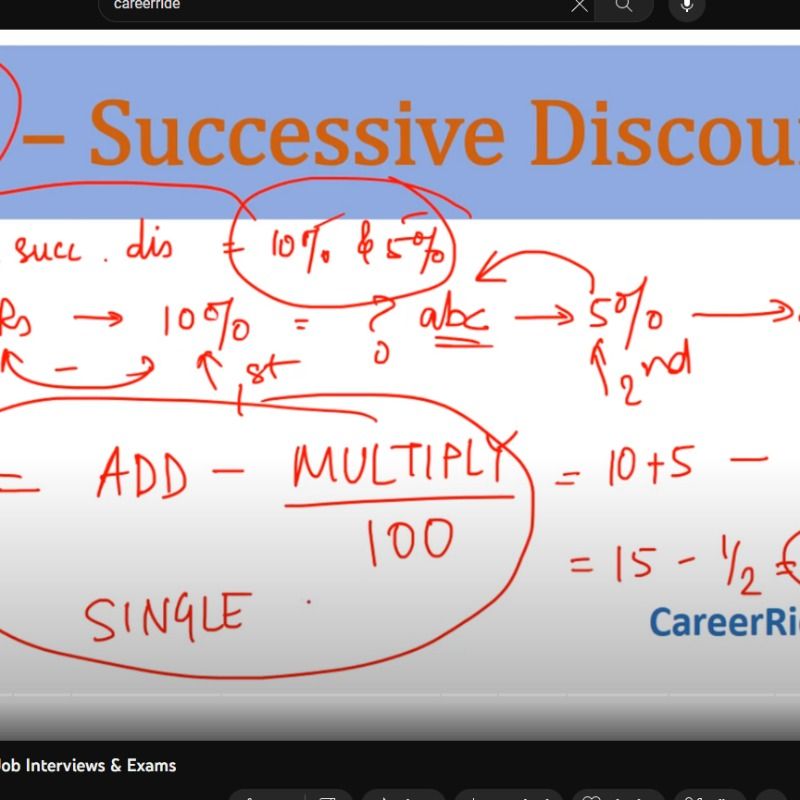 careerride
– Successive Discou
succ. dis = 10% & 5%
Rs → 10% = ? abc → 5% →
1st 2nd
= ADD – MULTIPLY / 100 = 10+5 –
= 15 – 1/2 =
SINGLE
CareerRi
ob Interviews & Exams